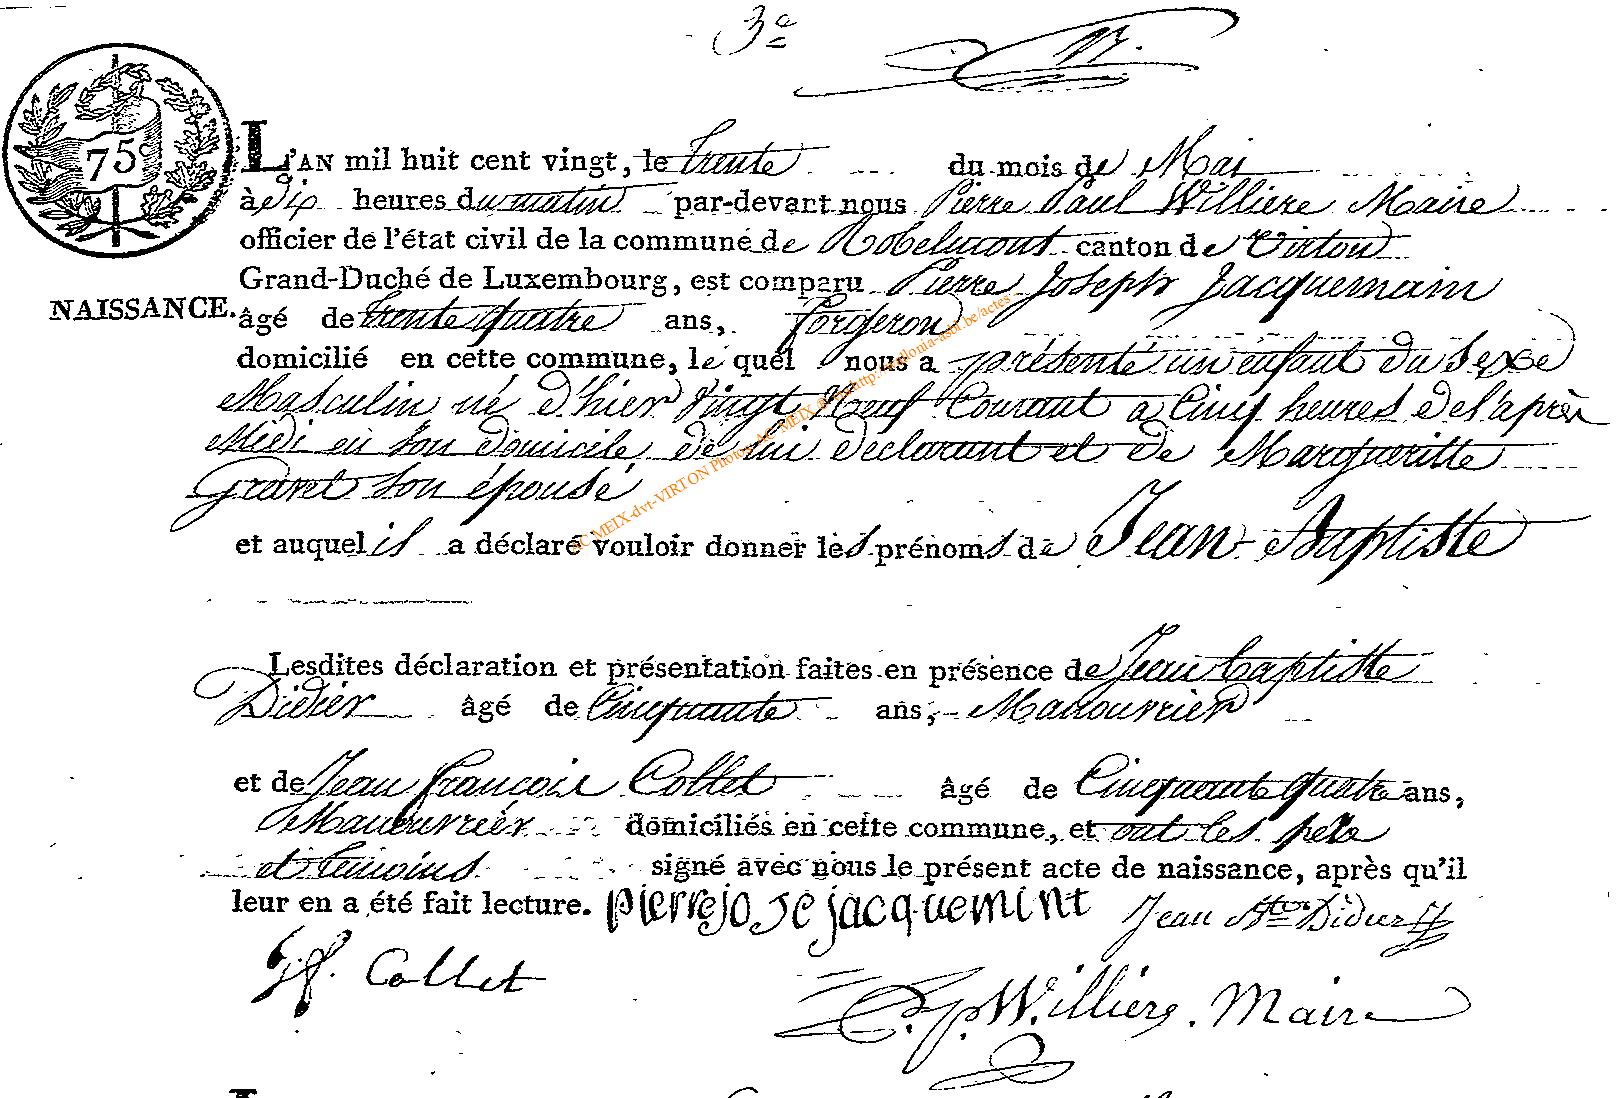 3e
75
L'AN mil huit cent vingt, le trente du mois de Mai
à dix heures du matin par-devant nous Pierre Paul Williere Maire
officier de l'état civil de la commune de Robelmont canton de Virton
Grand-Duché de Luxembourg, est comparu Pierre Joseph Jacquemain
NAISSANCE. âgé de trente quatre ans, forgeron
domicilié en cette commune, lequel nous a présenté un enfant du sexe
Masculin né d'hier vingt Neuf Courant a Cinq heures de l'après
Midi en son domicile de lui declarant et de Margueritte
Gravet son épouse
et auquel il a déclaré vouloir donner les prénoms de Jean-Baptiste
Lesdites déclaration et présentation faites en présence de Jean baptiste
Didier âgé de Cinquante ans, Manouvrier
et de Jean françois Collet âgé de Cinquante quatre ans,
Manouvrier domiciliés en cette commune, et ont les père
et temoins signé avec nous le présent acte de naissance, après qu'il
leur en a été fait lecture. pierre jo se jacquemint Jean Bte Didier
J f. Collet
P. p. Williere. Maire
AC MEIX-dvt-VIRTON Photos AC MEIX